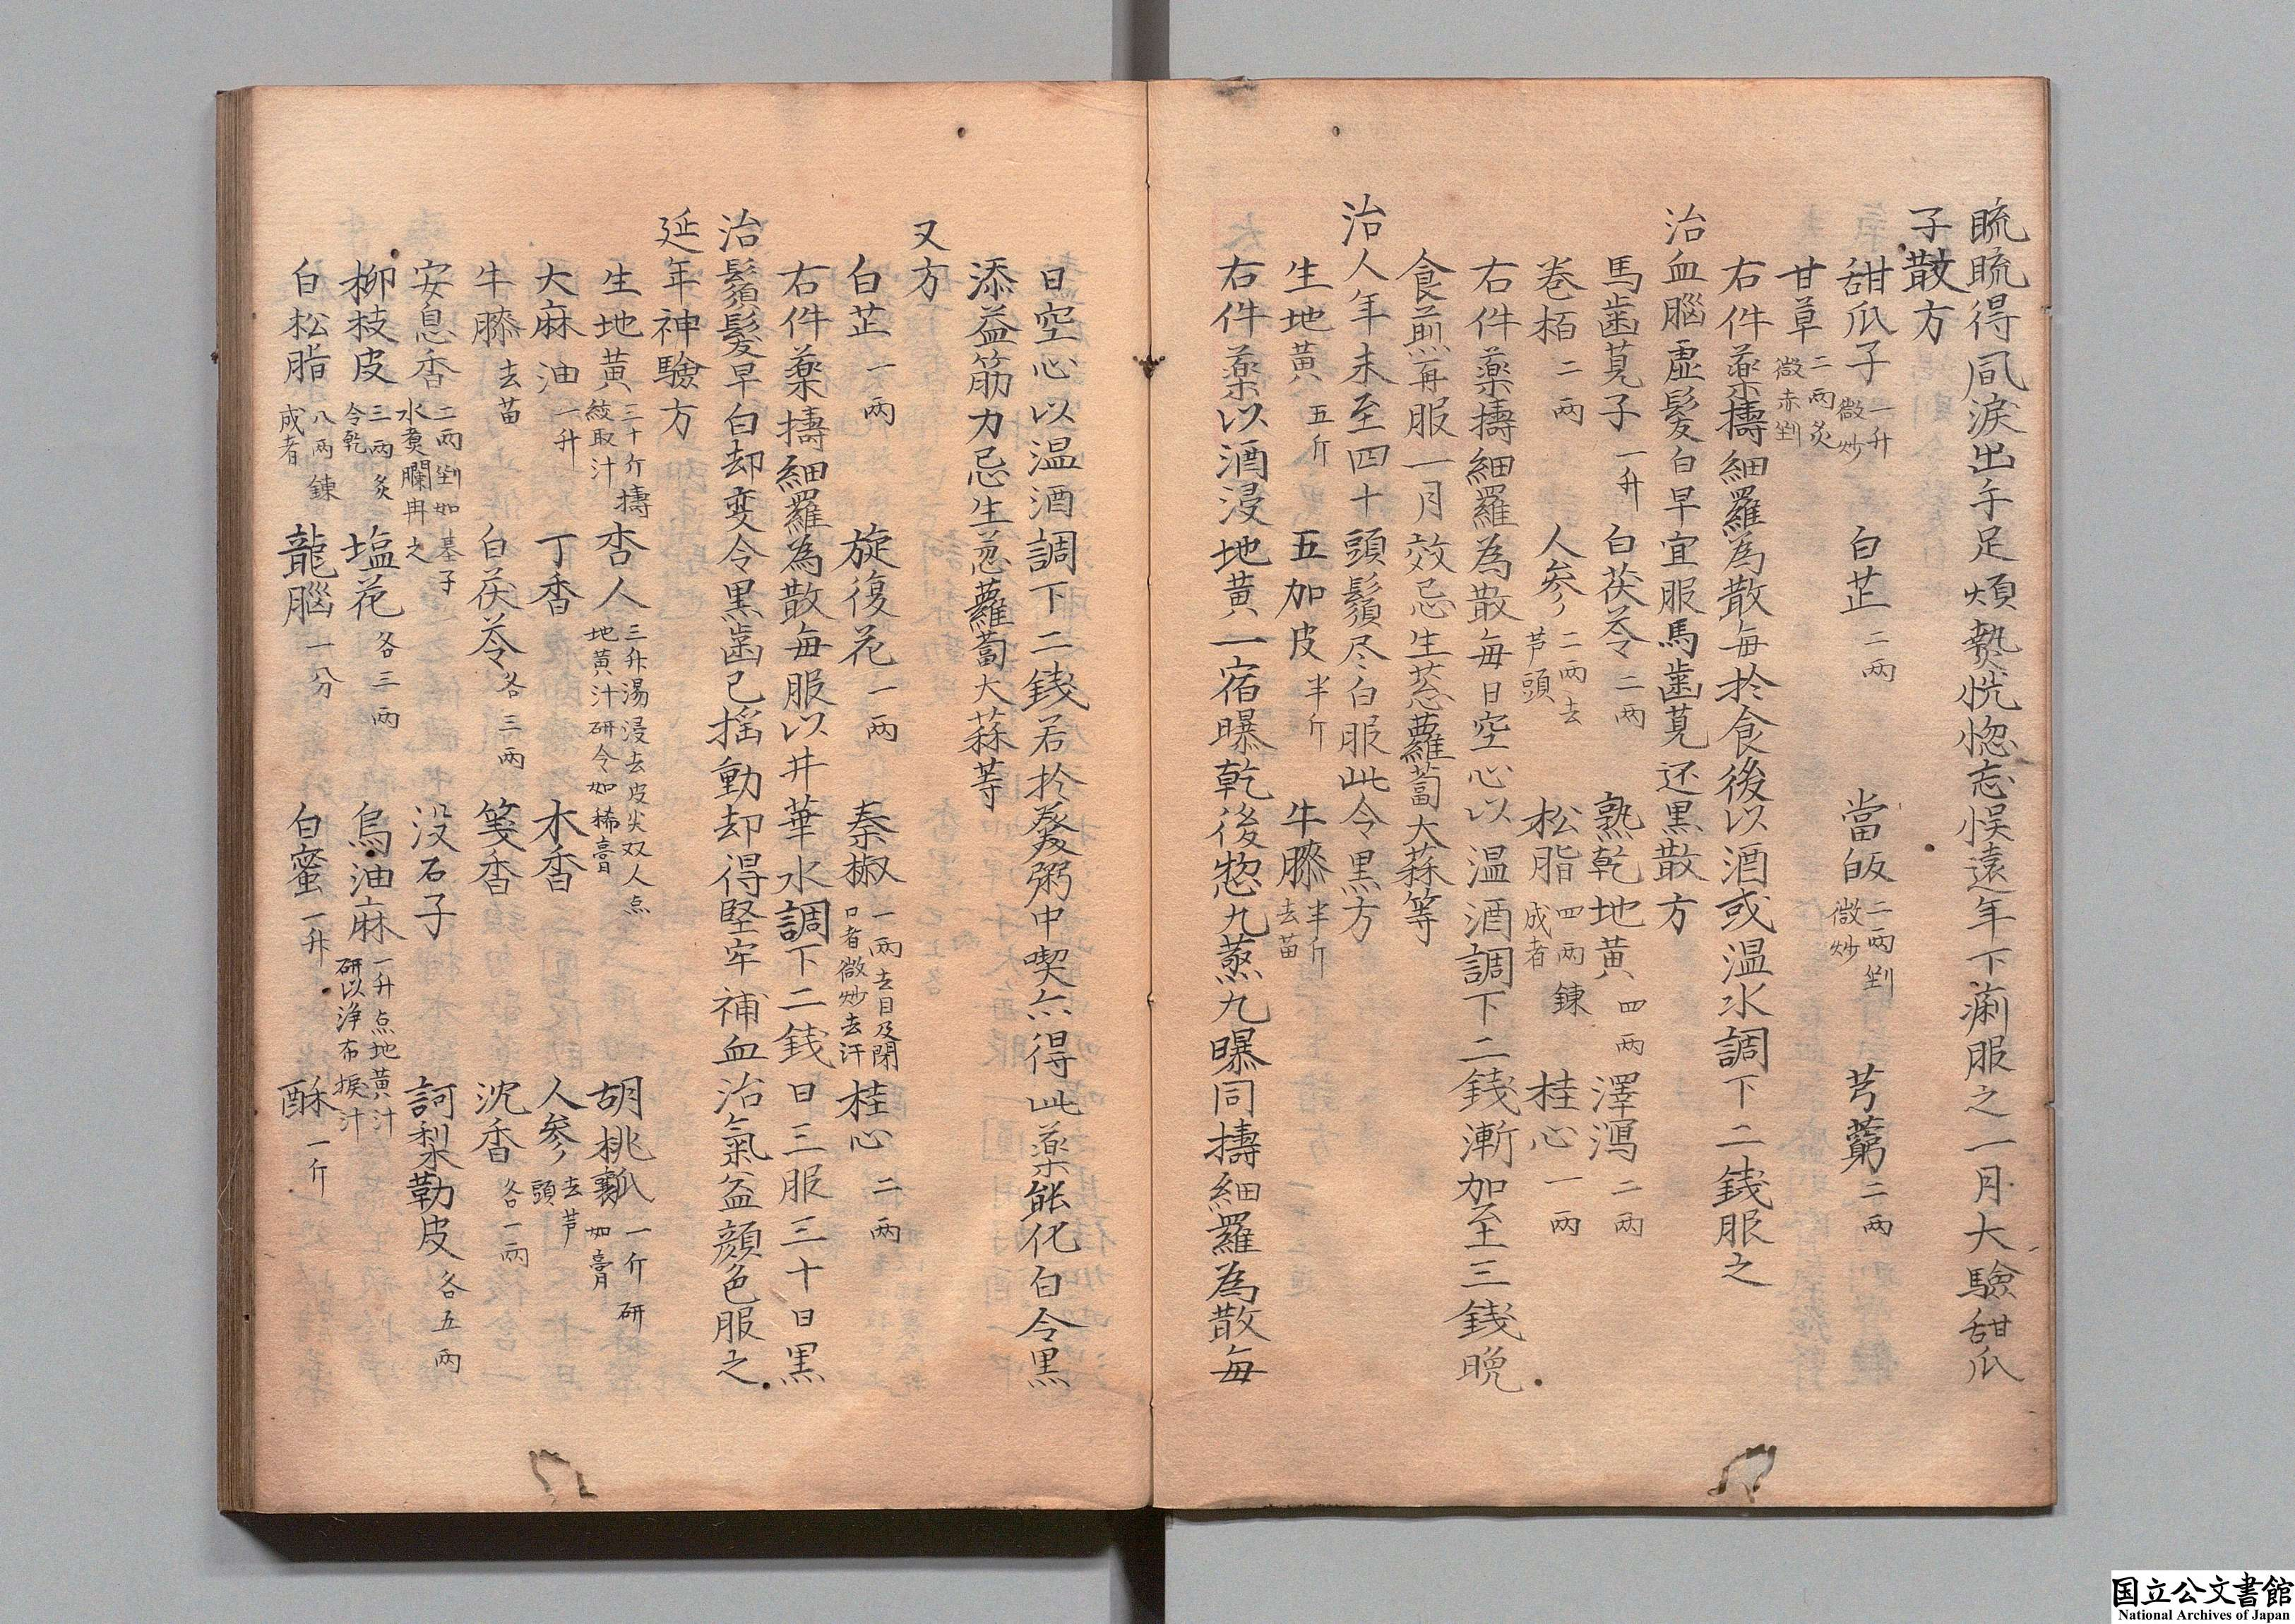 䀮䀮得風淚出手足煩𤍠恍惚忘悮遠年下痢服之一月大驗甜瓜
子散方
甜瓜子一升微炒 白芷二兩 當皈二兩剉微炒 芎藭二兩
甘草二兩炙微赤剉
右件薬擣細羅為散每於食後以酒或温水調下二錢服之
治血腦虛髮白早宜服馬齒莧还黒散方
馬齒莧子一升 白茯苓二兩 熟乾地黄四兩 澤瀉二兩
巻栢二兩 人参二兩去芦頭 松脂四兩鍊成者 桂心一兩
右件薬擣細羅為散每日空心以温酒調下二錢漸加至三錢晩
食前再服一月效忌生葱蘿蔔大蒜等
治人年未至四十頭鬚尽白服此令黒方
生地黄五斤 五加皮半斤 牛膝半斤去苗
右件薬以酒浸地黄一宿曝乾後惣九蒸九曝同擣細羅為散每
日空心以温酒調下二錢若於羹粥中喫亦得此薬能化白令黒
添益筋力忌生葱蘿蔔大蒜等
又方
白芷一兩 旋復花一兩 秦椒一兩去目及閉口者微炒去汗 桂心二兩
右件薬擣細羅為散每服以井華水調下二錢日三服三十日黒
治鬚髮早白却変令黒齒已揺動却得堅牢補血治氣益顔色服之
延年神驗方
生地黄三十斤擣絞取汁 杏人三升湯浸去皮尖双人点地黄汁研令如稀膏 胡桃瓤一斤研如膏
大麻油一升 丁香 木香 人参去芦頭
牛膝去苗 白茯苓各三兩 箋香 沈香各一兩
安息香二兩剉如棊子水煑爛冉之 没石子 訶梨勒皮各五兩
柳枝皮三兩炙令乾 塩花各三兩 烏油麻一升点地黄汁研以浄布捩汁
白松脂八兩鍊成者 龍腦一分 白蜜一升 酥一斤
国立公文書館
National Archives of Japan